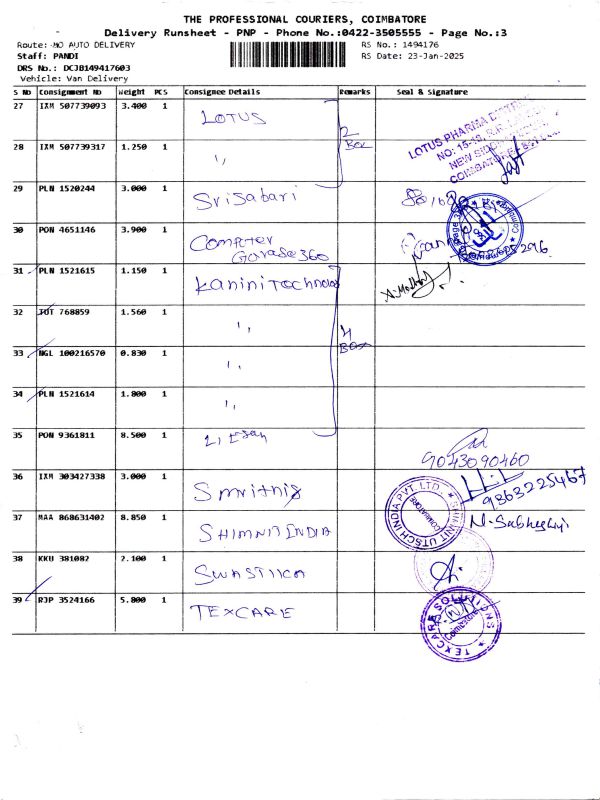 THE PROFESSIONAL COURIERS, COIMBATORE
Delivery Runsheet - PNP - Phone No.:0422-3505555 - Page No.:3
Route: MO AUTO DELIVERY RS No.: 1494176
Staff: PANDI RS Date: 23-Jan-2025
DRS No.: DCJB149417603
Vehicle: Van Delivery
S No Consignment No Weight PCS Consignee Details Remarks Seal & Signature
27 IXM 507739093 3.400 1 LOTUS
2 Box
LOTUS PHARMA
28 IXM 507739317 1.250 1 ,,
29 PLN 1520244 3.000 1 Sri Sabari
30 PON 4651146 3.900 1 Computer
Garase 360
31 PLN 1521615 1.150 1 Kanini Technolo
32 TUT 768859 1.560 1 ,,
4
33 NGL 100216570 0.830 1 ,, Box
34 PLN 1521614 1.800 1 ,,
35 PON 9361811 8.500 1
9043090460
36 IXM 303427338 3.000 1 Smrithi 9863225467
37 MAA 868631402 8.850 1 SHIMNIT INDIA
SHIMNIT UTSCH INDIA PVT. LTD. COIMBATORE
38 KKU 381082 2.100 1 SWASTIKA
39 RJP 3524166 5.800 1 TEXCARE
TEXCARE SOLUTIONS Coimbatore